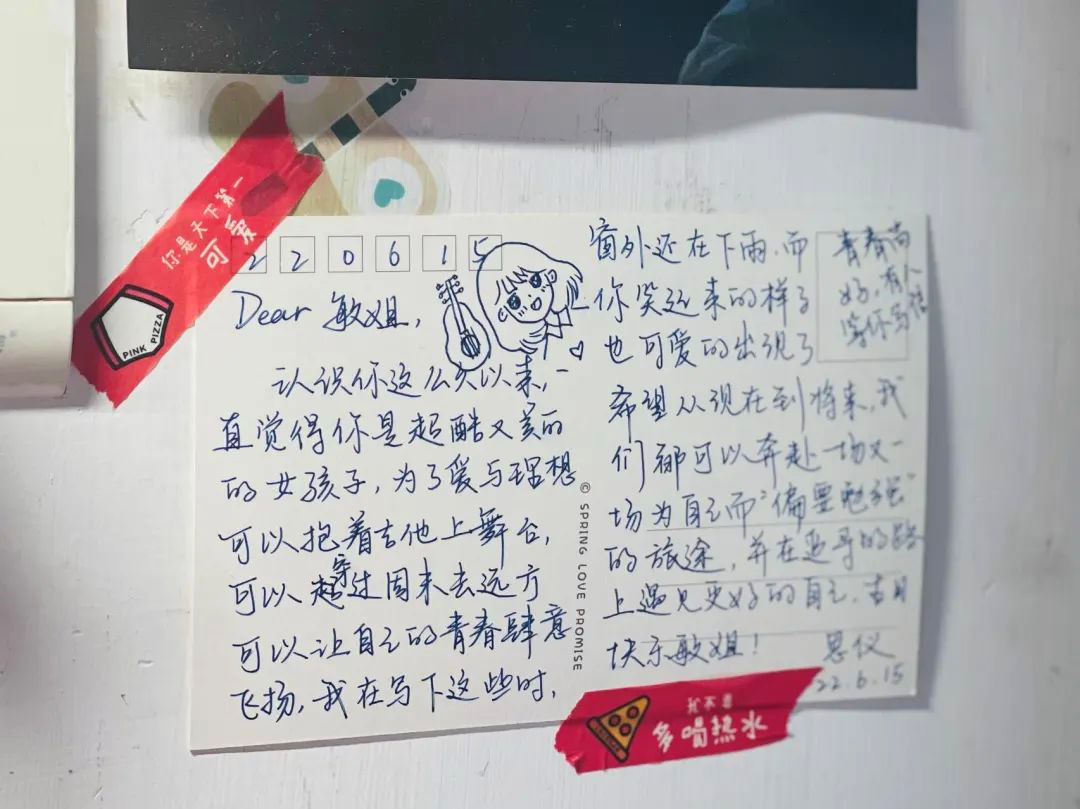 你是天下第一
可爱
PINK PIZZA
220615
Dear 敏姐,
认识你这么久以来,一
直觉得你是超酷又美的
的女孩子,为了爱与理想
可以抱着吉他上舞台,
可以穿过周末去远方
可以让自己的青春肆意
飞扬,我在写下这些时,
© SPRING LOVE PROMISE
窗外还在下雨,而
你笑起来的样子
也可爱的出现了
希望从现在到将来,我
们都可以奔赴一场又一
场为自己而"偏要勉强"
的旅途,并在追寻的路
上遇见更好的自己.吉日
快乐敏姐!
思仪
22.6.15
青春尚
好,有人
写信
多喝热水